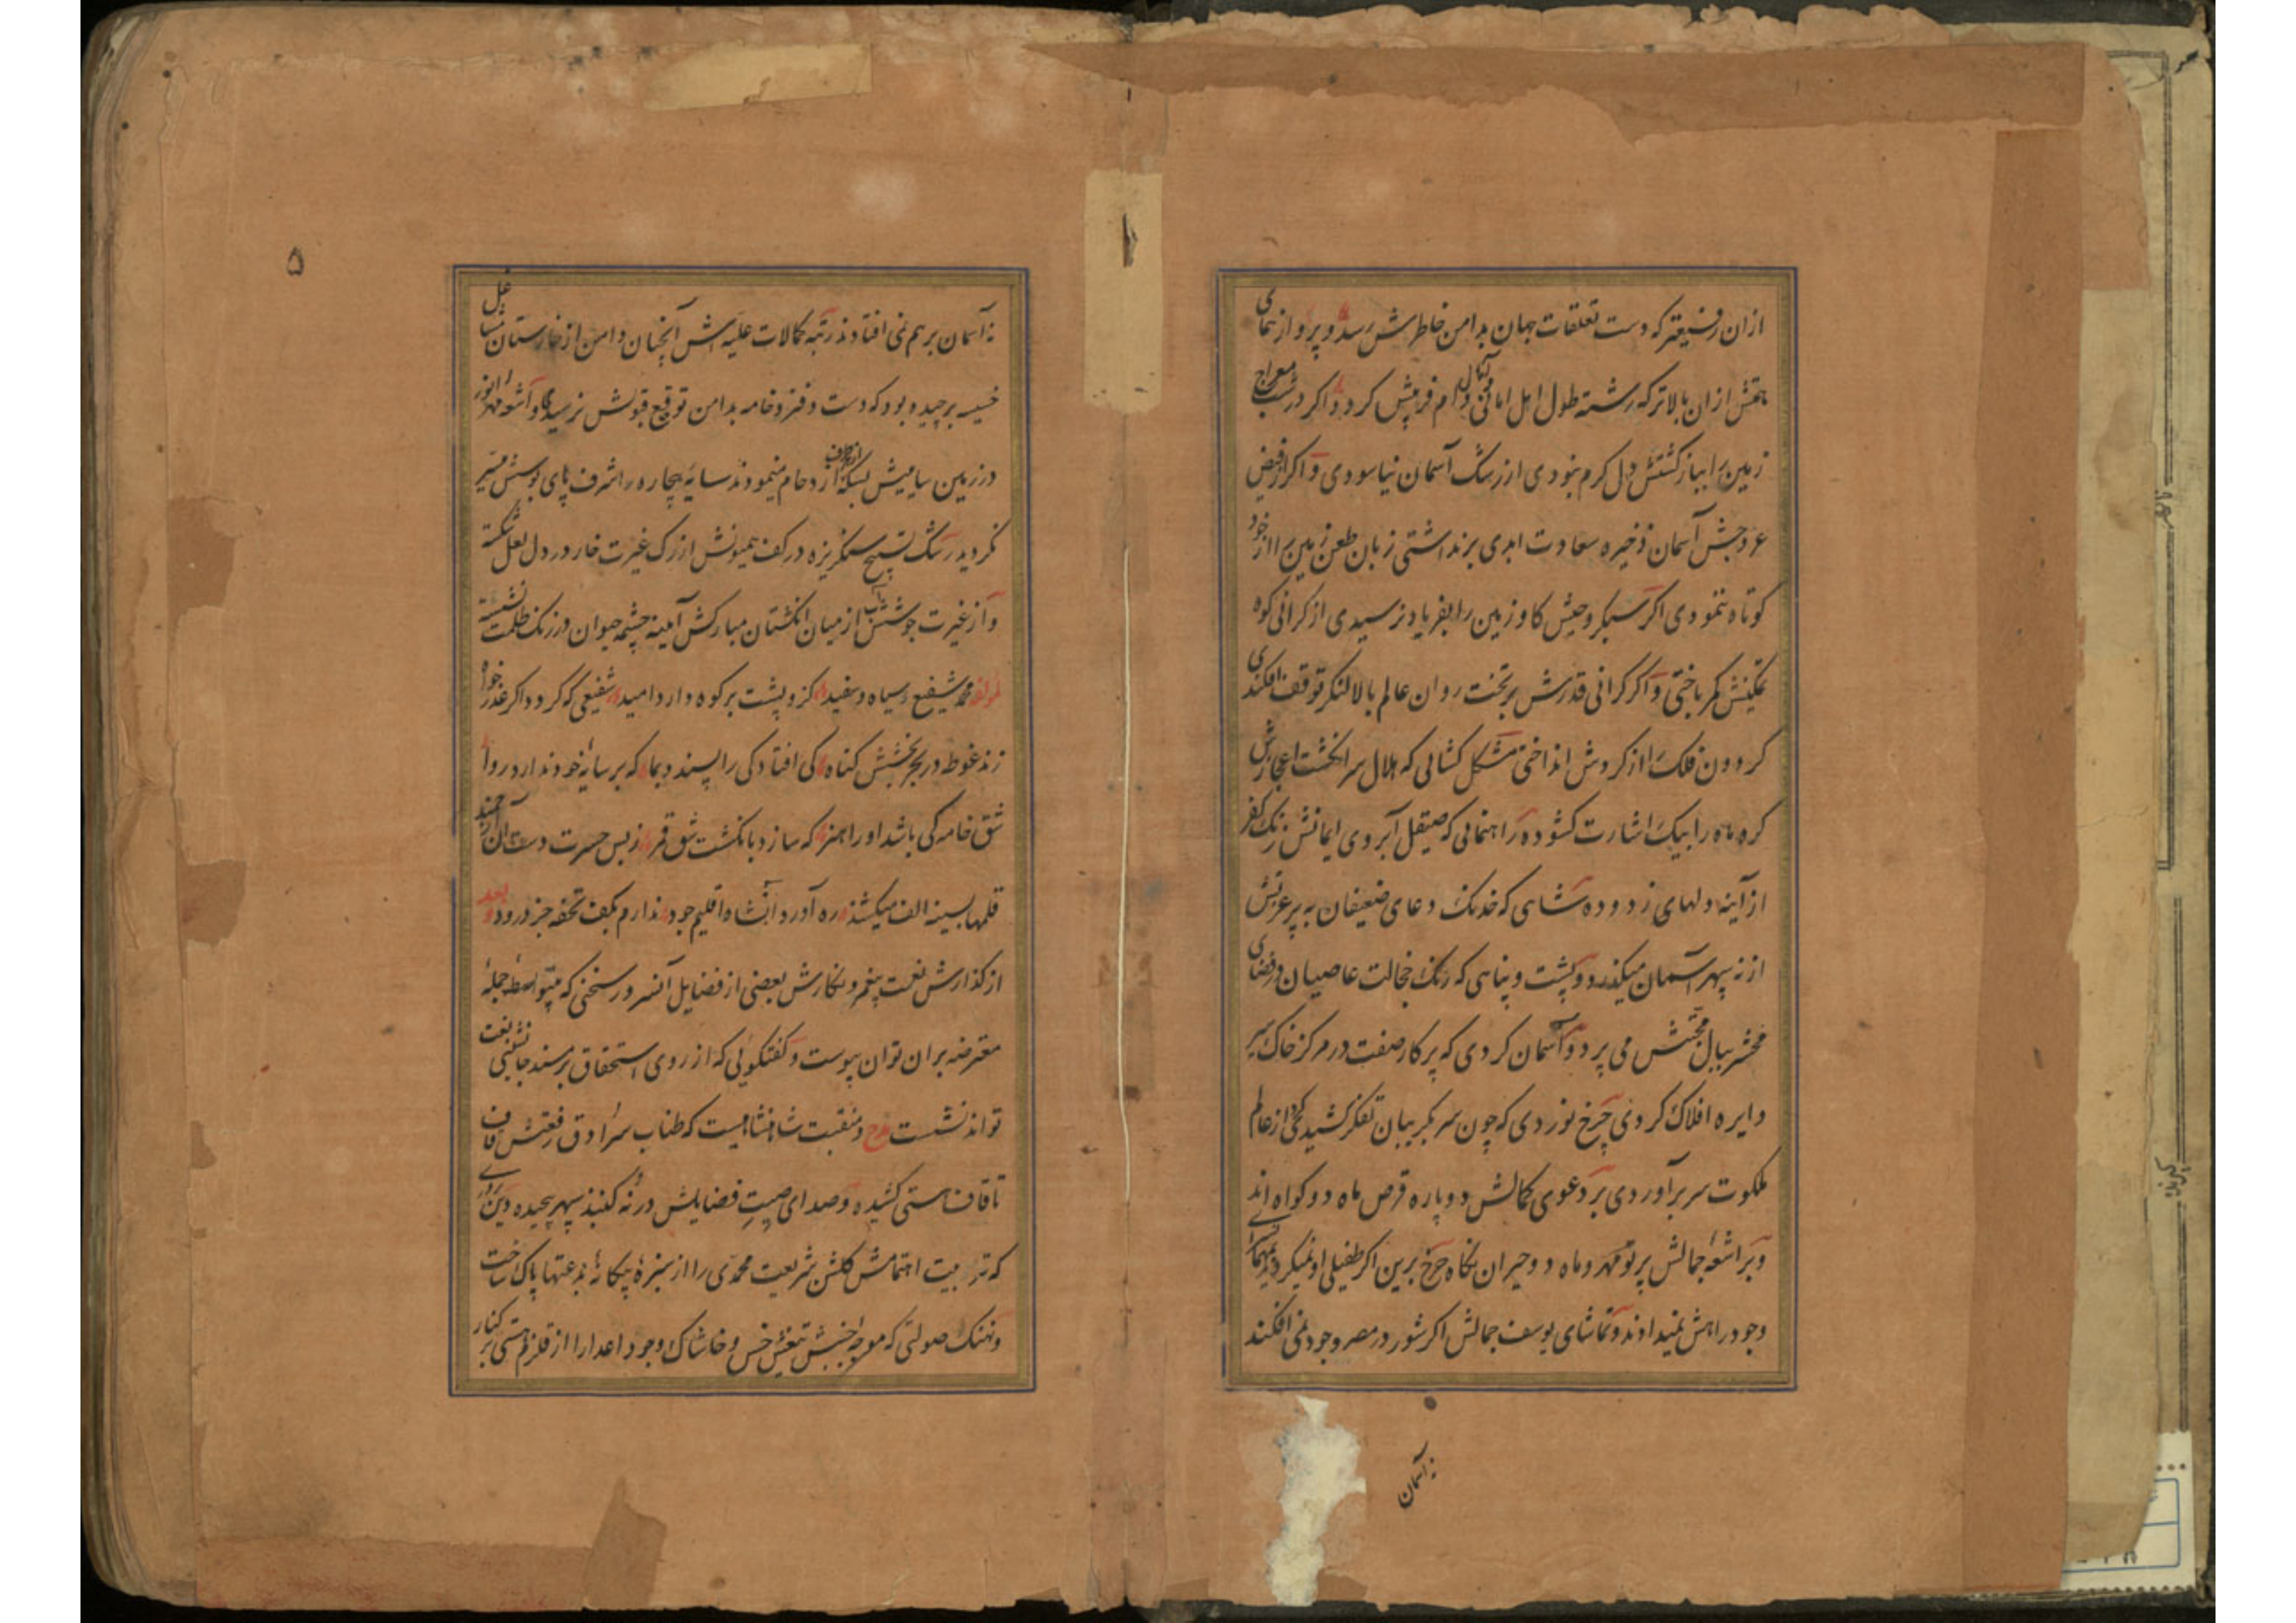 ازان رفیعتر که دست تعلقات جهان بدامن خاطرش رسد و پرواز همای
همتش ازان بالاتر که رشته طول امل دام فریبش کردد و اکر در شب معراج
زمین را بباز کشتش دل کرم نبودی از رشک آسمان نیاسودی و اکر از فیض
عروجش آسمان ذخیره سعادت ابدی برنداشتی زبان طعن زمین را از خود
کوتاه ننمودی اکر سبکروحیش کاو زمین را بفریاد نرسیدی از کرانی کوه
تمکینش کمر باختی و اکر کرانی قدرش بر تخت روان عالم بالا لنکر توقف افکندی
کردون فلک را از کردش انداختی مشکل کشائی که هلال سر انکشت اعجازش
کره ماه را بیک اشارت کشوده راهنمائی که صیقل ابروی ایمانش زنک کفر
از آینه دلهای زدوده شاهی که خدنک دعای ضعیفان به پر عزتش
از نه سپهر آسمان میکذرد و پشت و پناهی که رنک خجالت عاصیان در فضای
محشر ببال محبتش می پرد و آسمان کردی که پرکار صفت در مرکز خاک سیر
دایره افلاک کردی چرخ نوردی که چون سر بکریبان تفکر کشیدی از عالم
ملکوت سر برآوردی بر دعوی کمالش دو پاره قرص ماه دو کواه اند
و بر اشعه جمالش پرتو مهر و ماه دو حیران نکاه چرخ برین اکر طفیلی او نمیکردید بمهمانسرای
وجود راهش نمیدادند و تماشای یوسف جمالش اکر شور در مصر وجود نمی افکند
نه آسمان
۵
نه آسمان بر هم نمی افتادند رتبه کمالات علیه اش آنچنان دامن از خارستان
خسیسه برچیده بود که دست دفتر و خامه بدامن توقیع قبولش نرسیدی و اشعه مهر انور
در زمین سایه‌اش بسکه از طرف ازدحام مینمودند سایه بیچاره را شرف پای بوسش میسر
نکردید رشک تسبیح سنکریزه در کف همیونش از رک غیرت خار در دل لعل شکسته
و از غیرت جوشش آب از میان انکشتان مبارکش آینه چشمه حیوان در زنک ظلمت نشسته
لمؤلفه محمد شفیع سیاه و سفید کزو پشت بر کوه دارد امید شفیعی که کردد اکر عذرخواه
زند غوطه در بحر بخشش کناه کی افتادکی را پسندد بما که بر سایه خود ندارد روا
شق خامه کی باشد او را هنر که سازد بانکشت شق قمر ز بس حسرت دست آن ارجمند
قلمها بسینه الف میکشند ره آورد آن شاه اقلیم جود ندارم بکف تحفه جز درود و بعد
از کذارش نعت پیغمبر و نکارش بعضی از فضایل آنسرور سخنی که بیواسطه جمله
معترضه بران توان پیوست و کفتکوئی که از روی استحقاق بر مسند جانشینی نعت
تواند نشست مدح و منقبت شاهنشاهیست که طناب سرادق رفعتش قاف
تا قاف هستی کشیده و صدای صیت فضایلش در نه کنبد سپهر پیچیده دین پروری
که تربیت اهتمامش کلشن شریعت محمدی را از سبزه بیکانه بدعتها پاک ساخت
و نهنک صولتی که موجه جنبش تیغش خس و خاشاک وجود اعدا را از قلزم هستی بر کنار